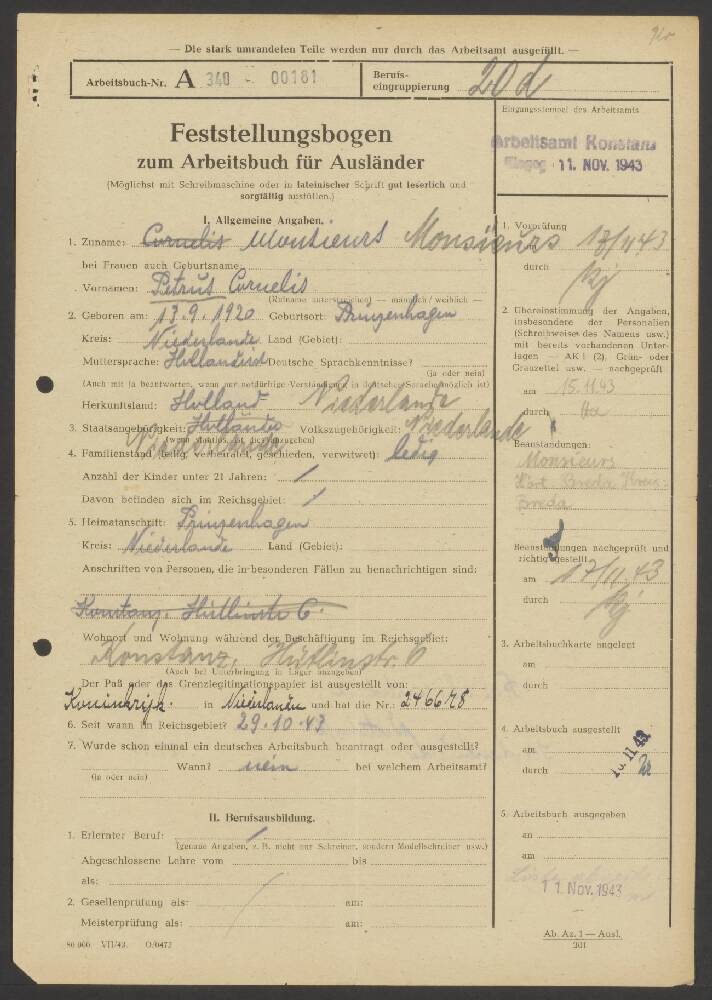 — Die stark umrandeten Teile werden nur durch das Arbeitsamt ausgefüllt. —
Arbeitsbuch-Nr. A 340 - 00181
Berufs-
eingruppierung 20 d
Feststellungsbogen
zum Arbeitsbuch für Ausländer
(Möglichst mit Schreibmaschine oder in lateinischer Schrift gut leserlich und
sorgfältig ausfüllen.)
I. Allgemeine Angaben.
1. Zuname: Cornelis Monsieurs Monsieurs
bei Frauen auch Geburtsname:
Vornamen: Petrus Cornelis
(Rufname unterstreichen) — männlich / weiblich —
2. Geboren am: 13.9.1920 Geburtsort: Prinzenhagen
Kreis: Niederlande Land (Gebiet):
Muttersprache: Holländisch Deutsche Sprachkenntnisse?
(ja oder nein)
(Auch mit ja beantworten, wenn nur notdürftige Verständigung in deutscher Sprache möglich ist)
Herkunftsland: Holland Niederlande
3. Staatsangehörigkeit: Holländer Volkszugehörigkeit: Niederlande
(wenn staatlos, ist dies anzugeben)
Niederlande
4. Familienstand (ledig, verheiratet, geschieden, verwitwet): ledig
Anzahl der Kinder unter 21 Jahren: /
Davon befinden sich im Reichsgebiet: /
5. Heimatanschrift: Prinzenhagen
Kreis: Niederlande Land (Gebiet):
Anschriften von Personen, die in besonderen Fällen zu benachrichtigen sind:
Konstanz. Hüttlinstr 6.
Wohnort und Wohnung während der Beschäftigung im Reichsgebiet:
Konstanz, Hütlinstr. 6
(Auch bei Unterbringung in Lager anzugeben)
Der Paß oder das Grenzlegitimationspapier ist ausgestellt von:
Koninkrijk. in Niederlanden und hat die Nr.: 246678
6. Seit wann im Reichsgebiet? 29.10.43
7. Wurde schon einmal ein deutsches Arbeitsbuch beantragt oder ausgestellt?
Wann? nein bei welchem Arbeitsamt?
(ja oder nein)
II. Berufsausbildung.
1. Erlernter Beruf: /
(genaue Angaben, z. B. nicht nur Schreiner, sondern Modellschreiner usw.)
Abgeschlossene Lehre vom bis
als:
2. Gesellenprüfung als: am:
Meisterprüfung als: am:
80 000. VII/43. O/0472
Eingangsstempel des Arbeitsamts
Arbeitsamt Konstanz
Eingeg. 11. NOV. 1943
1. Vorprüfung
am 13/11 43
durch
2. Übereinstimmung der Angaben,
insbesondere der Personalien
(Schreibweise des Namens usw.)
mit bereits vorhandenen Unter-
lagen — AK 1 (2), Grün- oder
Grauzettel usw. — nachgeprüft
am 15.11.43
durch
Beanstandungen:
Monsieurs
Breda Kreis:
Breda
Beanstandungen nachgeprüft und
richtiggestellt
am 17/11.43
durch
3. Arbeitsbuchkarte angelegt
am
durch
4. Arbeitsbuch ausgestellt
am
durch
5. Arbeitsbuch ausgegeben
an
am
11. Nov. 1943
Ab. Az. 1 — Ausl.
201